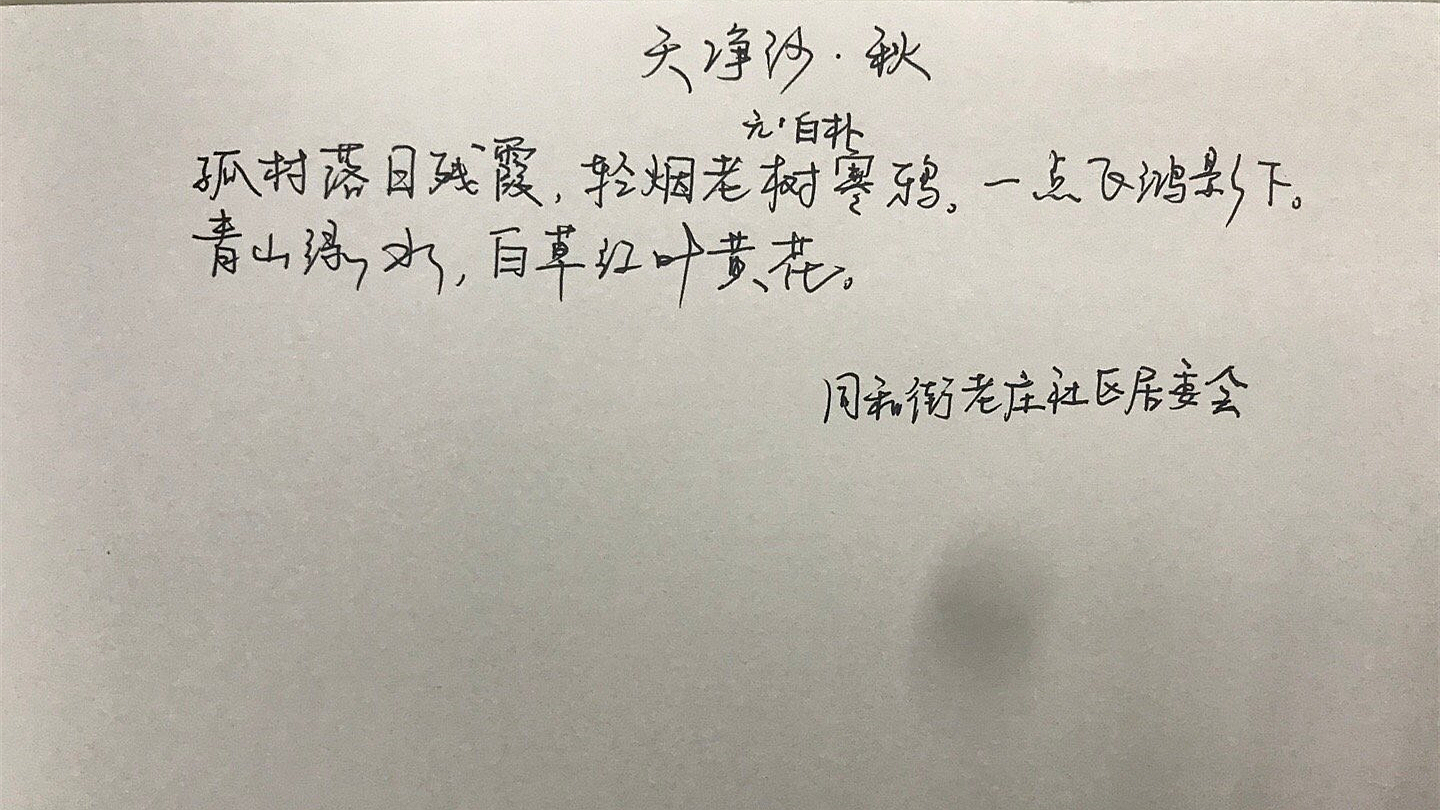 天净沙·秋
元·白朴
孤村落日残霞,轻烟老树寒鸦。一点飞鸿影下。
青山绿水,白草红叶黄花。
同和街老庄社区居委会